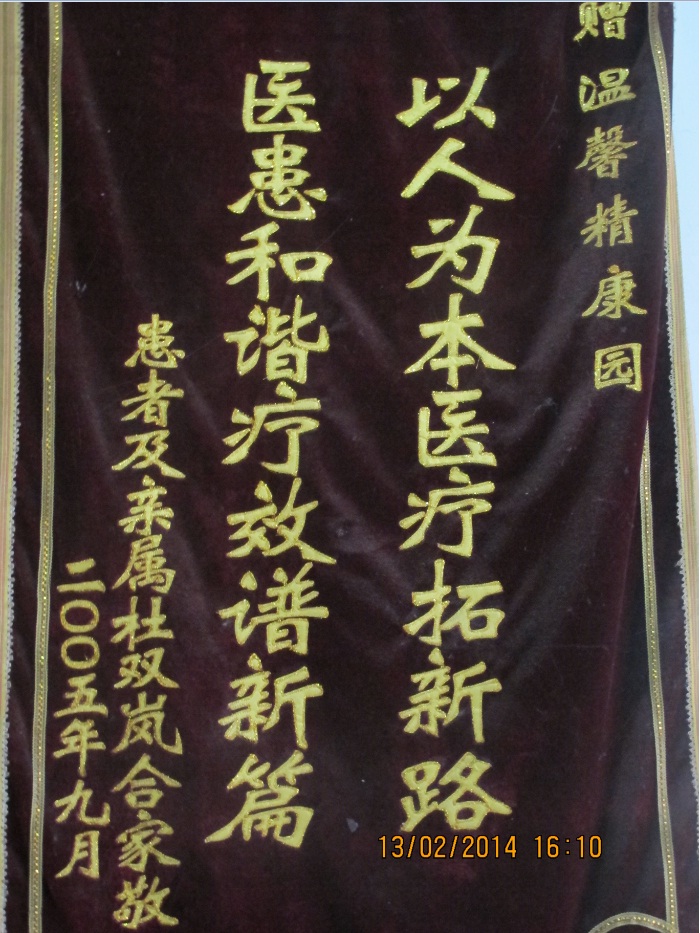 赠温馨精康园
以人为本医疗拓新路
医患和谐疗效谱新篇
患者及亲属杜双岚合家敬
二〇〇五年九月
13/02/2014 16:10